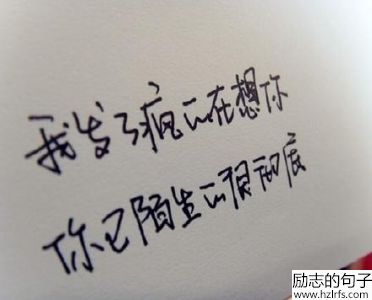 我发了疯的在想你
你已陌生的很彻底
励志的句子
www.hzlrfs.com